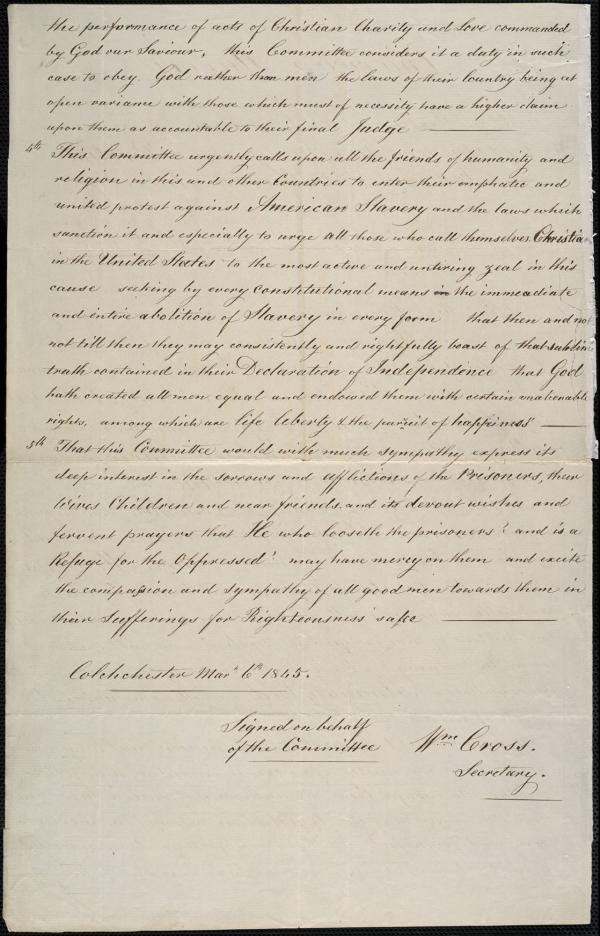 the performance of acts of Christian Charity and Love commanded
by God our Saviour, this Committee considers it a duty in such
case to obey God rather than men the laws of their Country being at
open variance with those which must of necessity have a higher claim
upon them as accountable to their final Judge
4th This Committee urgently calls upon all the friends of humanity and
religion in this and other Countries to enter their emphatic and
united protest against American Slavery and the laws which
sanction it and especially to urge all those who call themselves Christian
in the United States to the most active and untiring zeal in this
cause seeking by every constitutional means in the immediate
and entire abolition of Slavery in every form that then and not
not till then they may consistently and rightfully boast of that
truth contained in their Declaration of Independence that God
hath created all men equal and endowed them with certain inalienable
rights, among which are life liberty & the pursuit of happiness"
5th That this Committee would with much sympathy express its
deep interest in the sorrows and afflictions of the Prisoners, their
Wives Children and near friends, and its devout wishes and
fervent prayers that He who looseth the prisoners' and is a
Refuge for the Oppressed' may have mercy on them and excite
the compassion and sympathy of all good men towards them in
their Sufferings for Righteousness' sake
Colchchester Mar. 6th 1845.
Signed on behalf
of the Committee
Wm Cross.
Secretary.